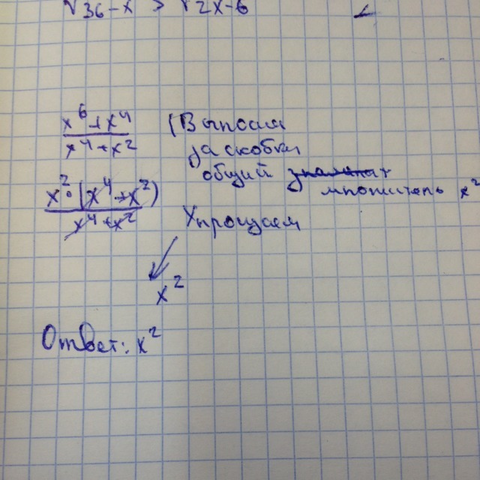 √36-x > √2x-6
x⁶+x⁴ / x⁴+x² (Выносим
за скобки
общий множитель x²
x²·(x⁴+x²) / x⁴+x² Упрощаем
x²
Ответ: x²